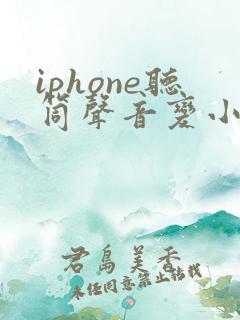 iphone聽
筒聲音變小
君島美香
未任同意禁止转载